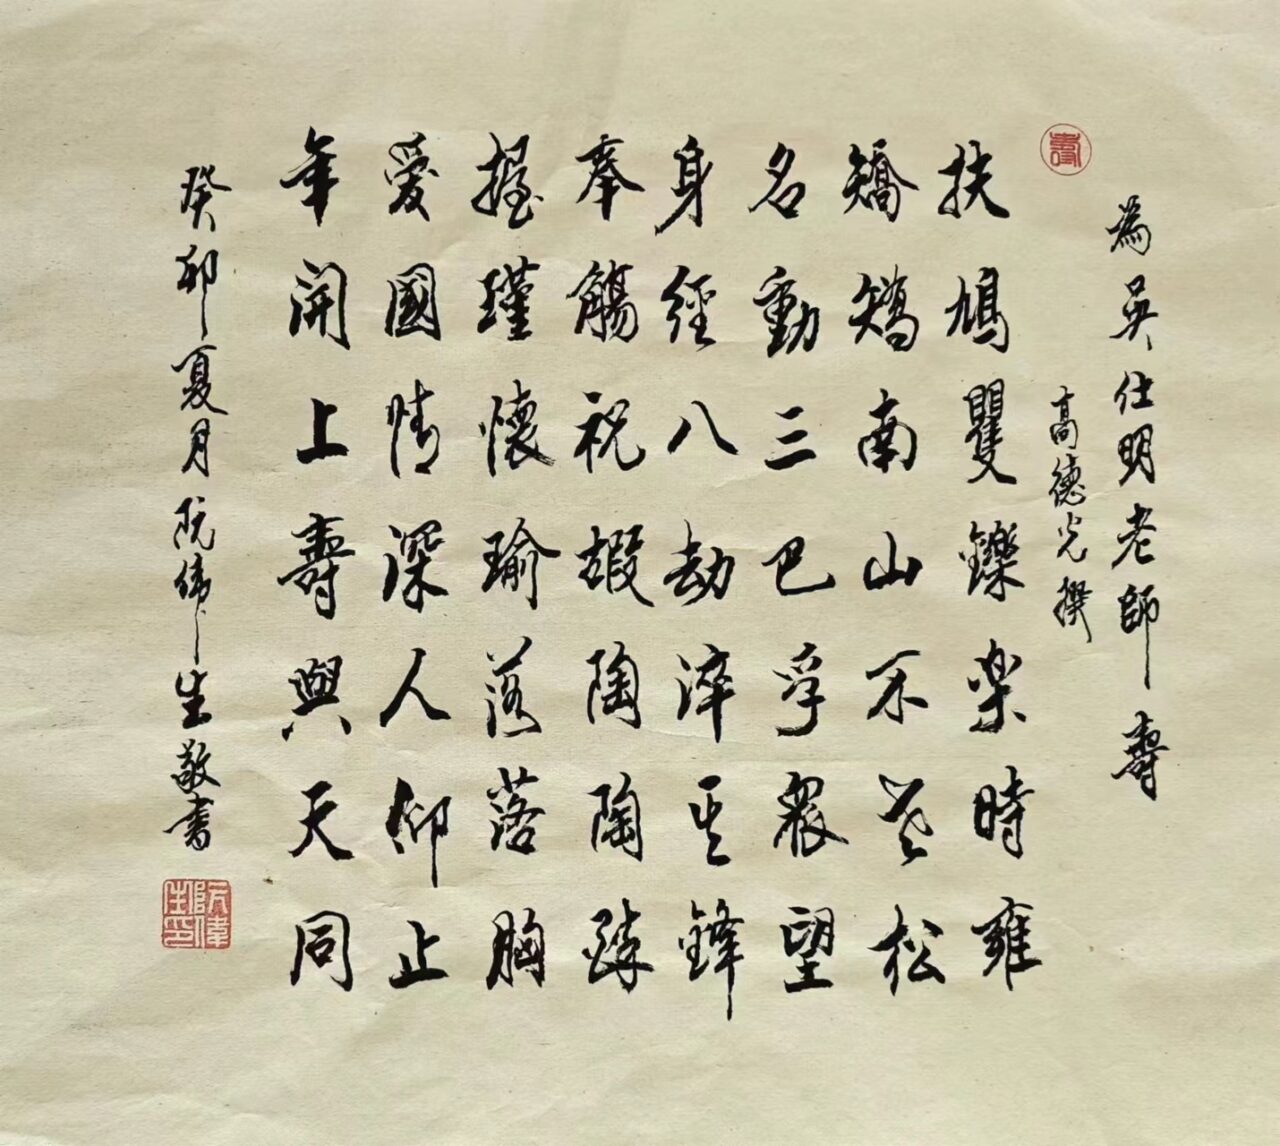 壽
為吳仕明老師壽
高德光撰
扶鳩矍鑠楽時雍
矯矯南山不老松
名動三巴孚眾望
身經八劫淬其鋒
奉觴祝嘏陶陶
握瑾懷瑜落落胸
愛國情深人仰止
年開上壽與天同
癸卯夏月阮偉生敬書
阮偉生印